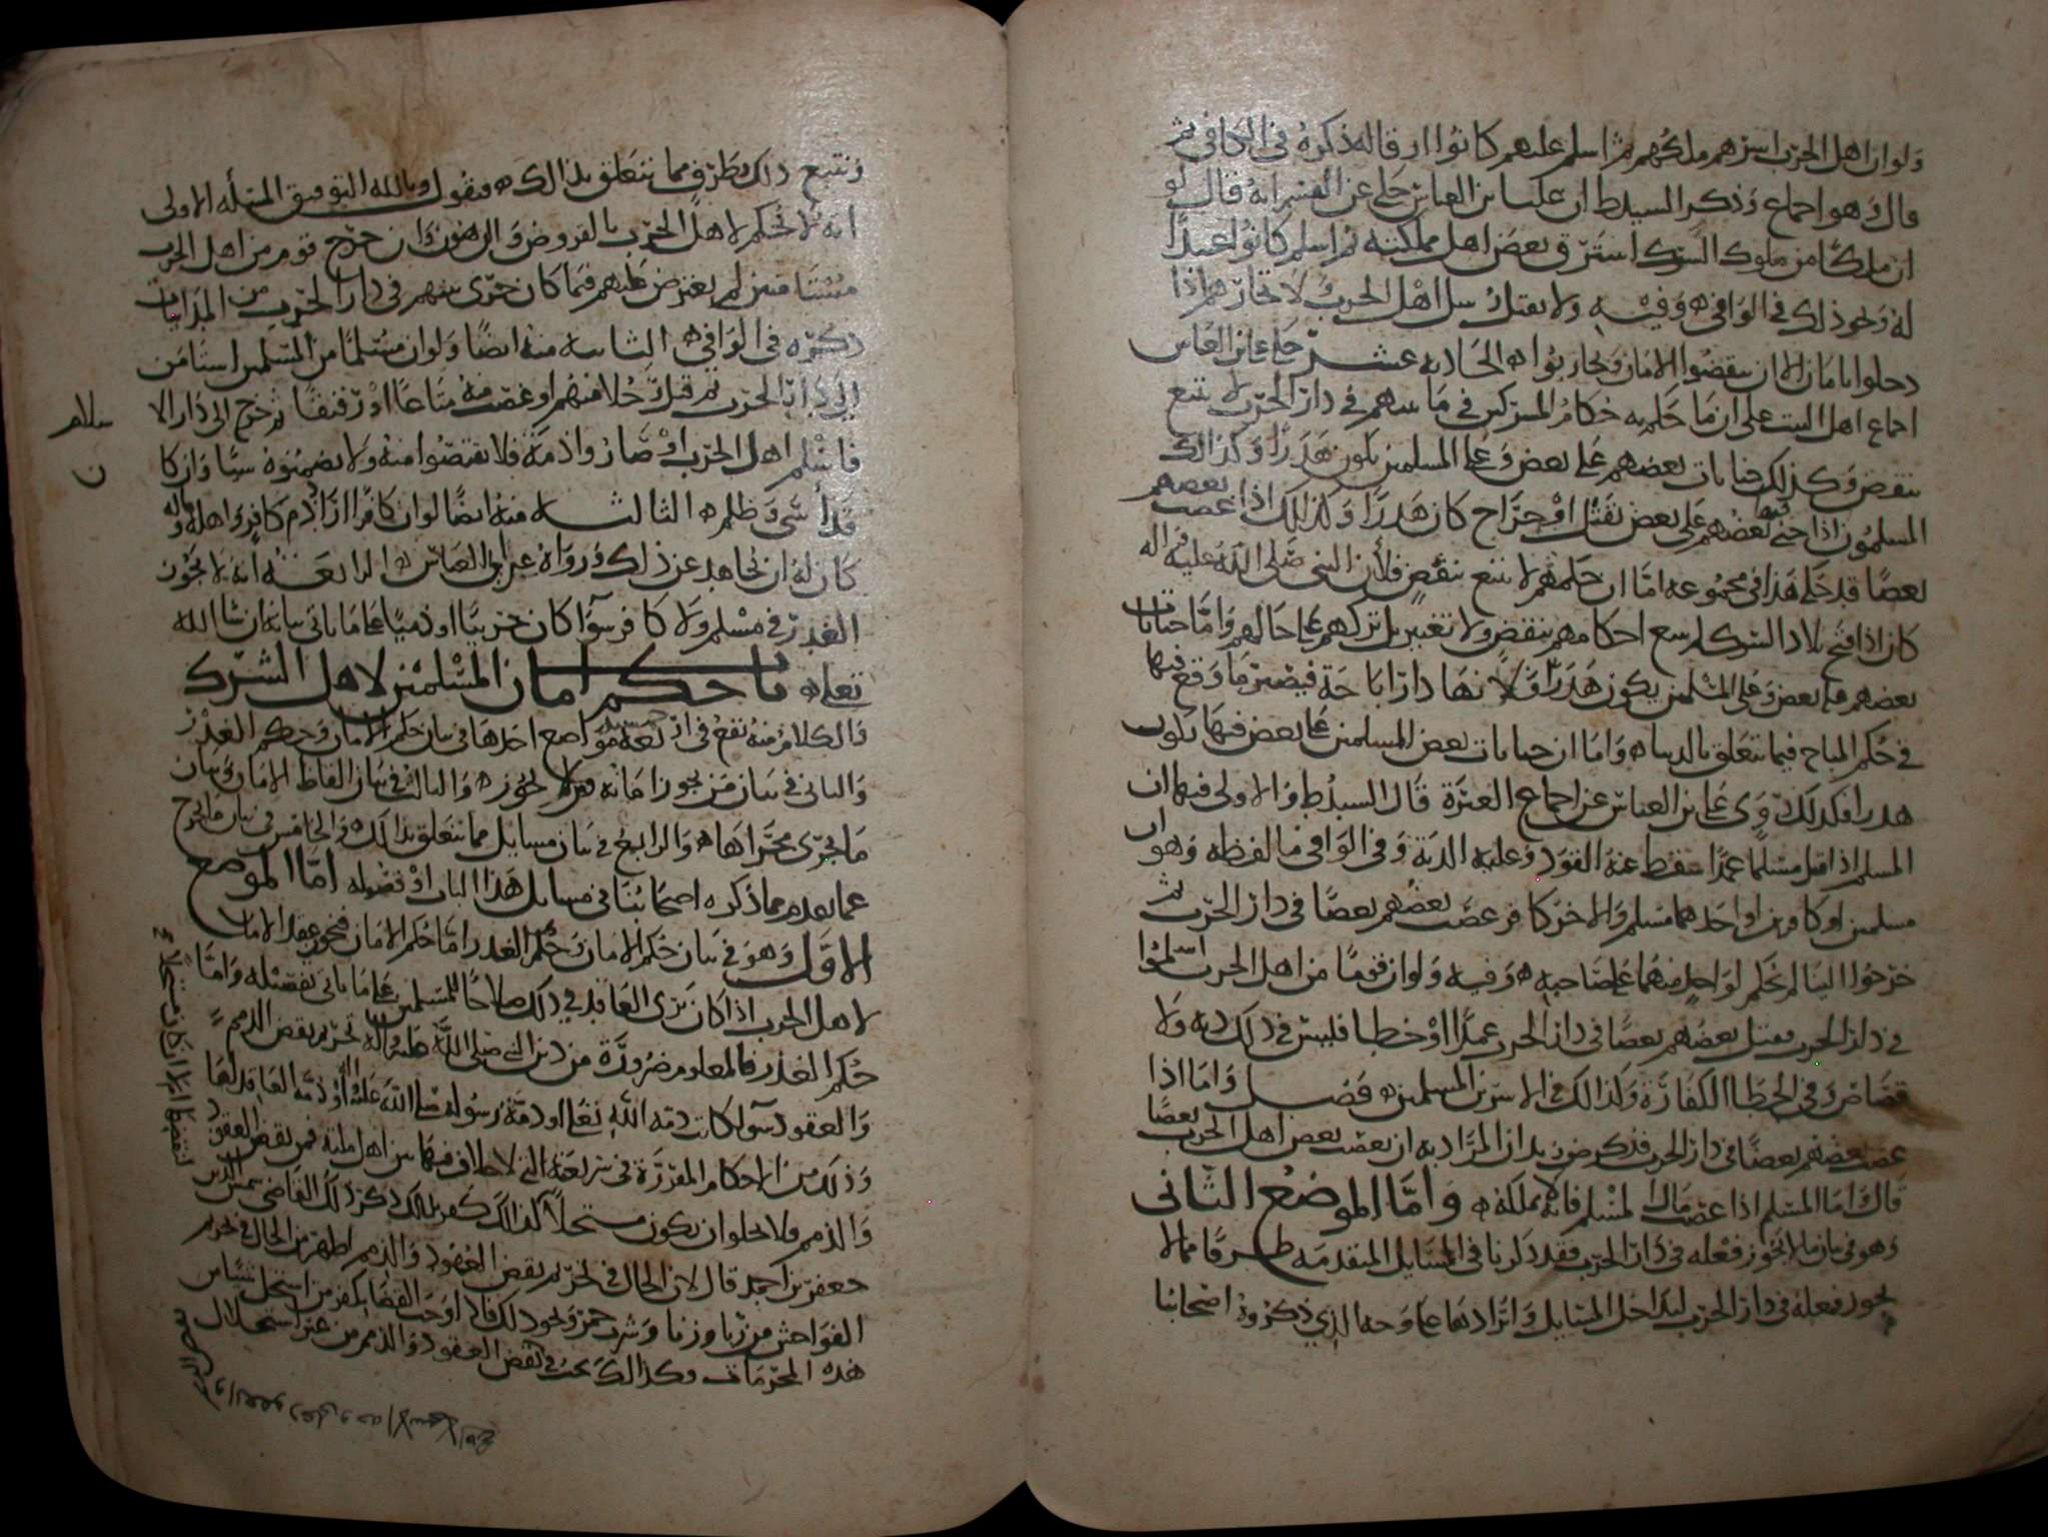 ولو ان اهل الحرب اسرهم ملكهم ثم اسلم عليهم كانوا ارقا له ذكره في الكافي ثم
قال وهو اجماع وذكر السيد ط ان علي بن العباس حكى عن القسم انه قال لو
ان ملكا من ملوك الشرك استرق بعض اهل مملكته ثم اسلم كانوا عبيدا
له ونحو ذلك في الوافي وفيه ولا يقتل رسل اهل الحرب ولا تجارهم اذا
دخلوا بامان الا ان ينقضوا الامان ويحاربوا الحادية عشر حكى علي بن العباس
اجماع اهل البيت على ان ما حكم به حكام المشركين في ما بينهم في دار الحرب لا يتبع
بنقض وكذلك جنايات بعضهم على بعض وعلى المسلمين يكون هدرا وكذلك
المسلمون اذا جنى بعضهم على بعض بقتل او جراح كان هدرا وكذلك اذا غصب بعضهم
بعضا قد حكى هذا في مجموعه اما ان حكمهم لا يتبع بنقض فلان النبي صلى الله عليه واله
كان اذا فتح بلاد الشرك لم يتبع احكامهم بنقض ولا تغيير بل تركهم على حالهم واما جنايات
بعضهم على بعض وعلى المسلمين يكون هدرا فلانها دار اباحة فيصير ما وقع فيها
في حكم المباح فيما يتعلق بالدنيا واما ان جنايات بعض المسلمين على بعض فيها يكون
هدرا فكذلك روى علي بن العباس عن اجماع العترة قال السيد ط والاولى فيهما ان
المسلم اذا قتل مسلما عمدا سقط عنه القود وعليه الدية وفي الوافي ما لفظه وهو ان
مسلمين او كافرين او احدهما مسلم والاخر كافر غصب بعضهم بعضا في دار الحرب ثم
خرجوا الينا لم نحكم لواحد منهما على صاحبه وفيه ولو ان قوما من اهل الحرب اسلموا
في دار الحرب فقتل بعضهم بعضا في دار الحرب عمدا او خطا فليس في ذلك دية ولا
قصاص وفي الخطا الكفارة وكذلك في الاسرى المسلمين فصل واما اذا
غصب بعضهم بعضا في دار الحرب فذكر ض زيد ان المراد به ان يغصب بعض اهل الحرب بعضا
قال اما المسلم اذا غصب مال المسلم فانه لا يملكه واما الموضع الثاني
وهو في بيان ما لا يجوز فعله في دار الحرب فقد ذكرنا في المسايل المتقدمة طرفا مما لا
يجوز فعله في دار الحرب لتداخل المسايل وايرادها على وجه الذي ذكروه اصحابنا
ونتبع ذلك بطرف مما يتعلق بذلك فنقول وبالله التوفيق المسأله الاولى
انه لا نحكم لاهل الحرب بالقروض والرهون وان خرج قوم من اهل الحرب
مستامنين لم يعترض عليهم فيما كان جرى بينهم في دار الحرب من المداينات
ذكره في الوافي الثانية منه ايضا ولو ان مسلما من المسلمين استامن
الى دار الحرب ثم قتل رجلا منهم او غصب منه متاعا او رقيقا ثم خرج الى دار الا
سلام
فاسلم اهل الحرب او صاروا ذمة فلا يقتصوا منه ولا يضمنوه شيا وان كا
ن
قد أسى وظلم الثالثة منه ايضا لو ان كافرا اراد دم كافر واهله وماله
كان له ان يجاهد عن ذلك ورواه عن ابي العباس الرابعة انه لا يجوز
الغدر في مسلم ولا كافر سوا كان حربيا او ذميا على ما ياتي بيانه ان شا الله
تعلى باب حكم امان المسلمين لاهل الشرك
والكلام منه يقع في اربعة مواضع احدها في بيان حكم الامان وحكم الغدر
والثاني في بيان من يجوز امانه ومن لا يجوز والثالث في بيان الفاظ الامان وبيان
ما يجري مجراها والرابع في بيان مسايل مما يتعلق بذلك والخامس في بيان ما يخرج
عما تقدم مما ذكره اصحابنا في مسايل هذا الباب او فصوله اما الموضع
الاول وهو في بيان حكم الامان وحكم الغدر اما حكم الامان فيجوز عقد الامان
لاهل الحرب اذا كان يرى العاقد في ذلك صلاحا للمسلمين على ما ياتي تفصيله واما
حكم الغدر فالمعلوم ضرورة من دين النبي صلى الله عليه واله تحريم نقض الذمم
والعقود سوا كانت ذمة الله تعالى او ذمة رسوله صلى الله عليه او ذمة العاقد لها
وذلك من الاحكام المقررة في شريعته التي لا خلاف فيها بين اهل ملته فمن نقض العقود
والذمم فلا يخلو ان يكون مستحلا لذلك كفر بذلك ذكر ذلك القاضي شمس الدين
جعفر بن احمد قال لان الحال في تحريم نقض العقود والذمم اظهر من الحال في تحريم
الفواحش من ربا وزنا وشرب خمر ونحو ذلك فاذا وجب القضا بكفر من استحل شيا من
هذه المحرمات وكذلك يجب في نقض العقود والذمم من غير استحلال